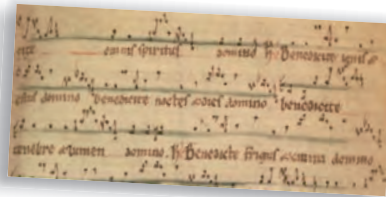 omnis spiritus domino V Benedicite ignis &
estus domino benedicite noctes & dies domino benedicite
tenebre & lumen domino. V Benedicite frigus & cauma domino